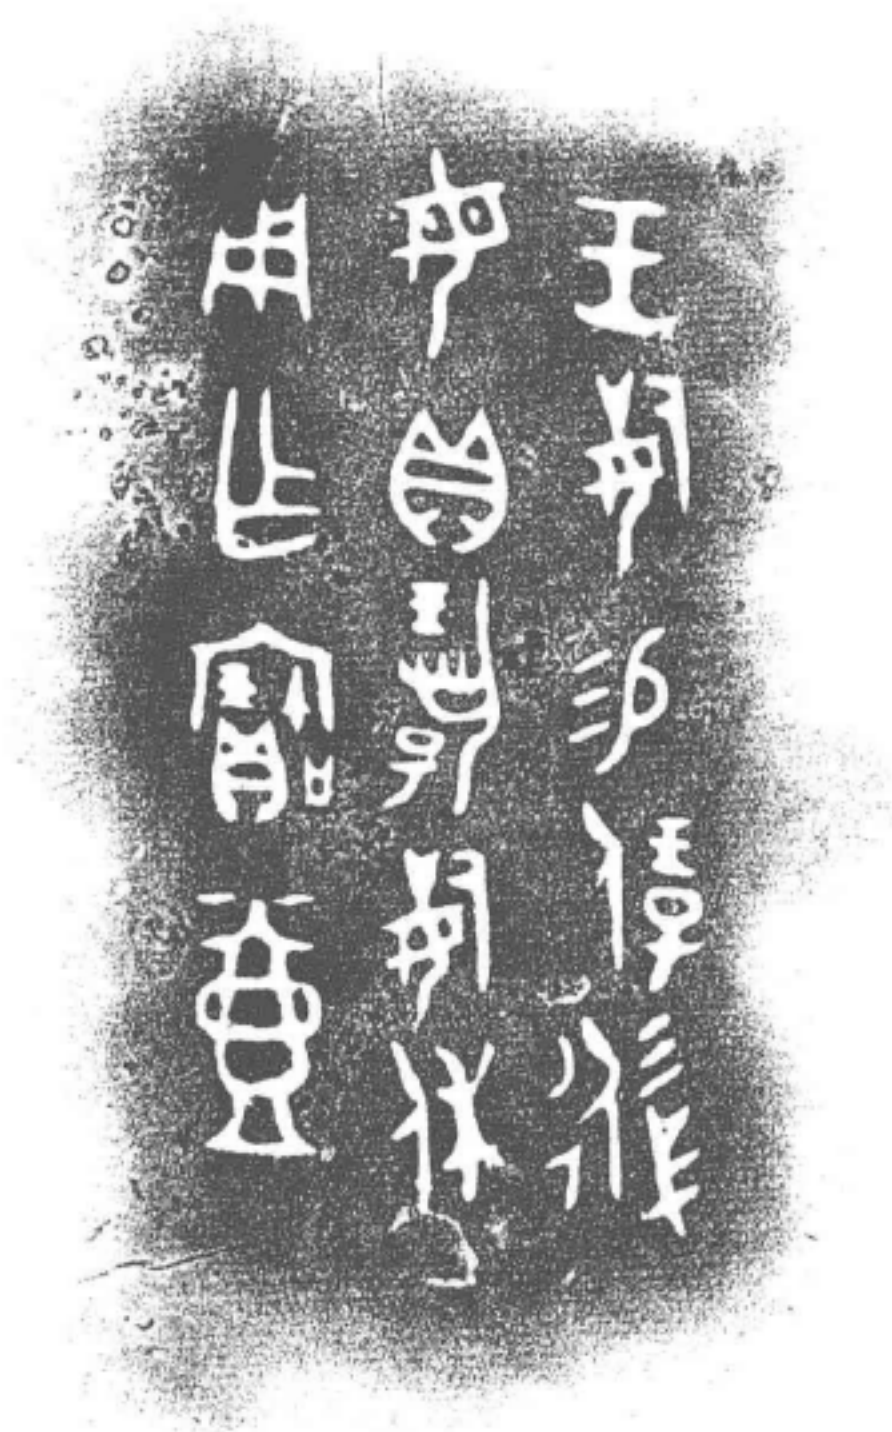 王姒易保侃
母貝揚姒休
用乍寶壺